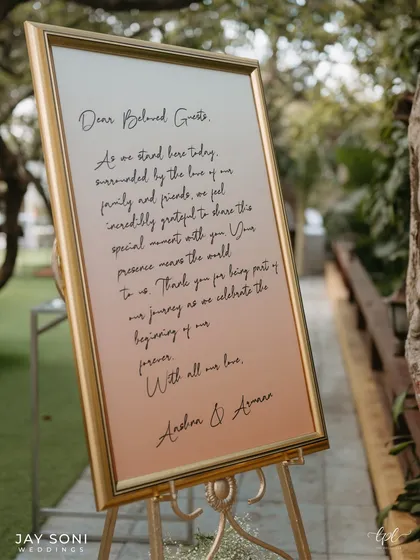 Dear Beloved Guests,
As we stand here today,
surrounded by the love of our
family and friends, we feel
incredibly grateful to share this
special moment with you. Your
presence means the world
to us. Thank you for being part of
our journey as we celebrate the
beginning of our
forever.
With all our love,
Aashna & Armaan
JAY SONI
WEDDINGS
tpl